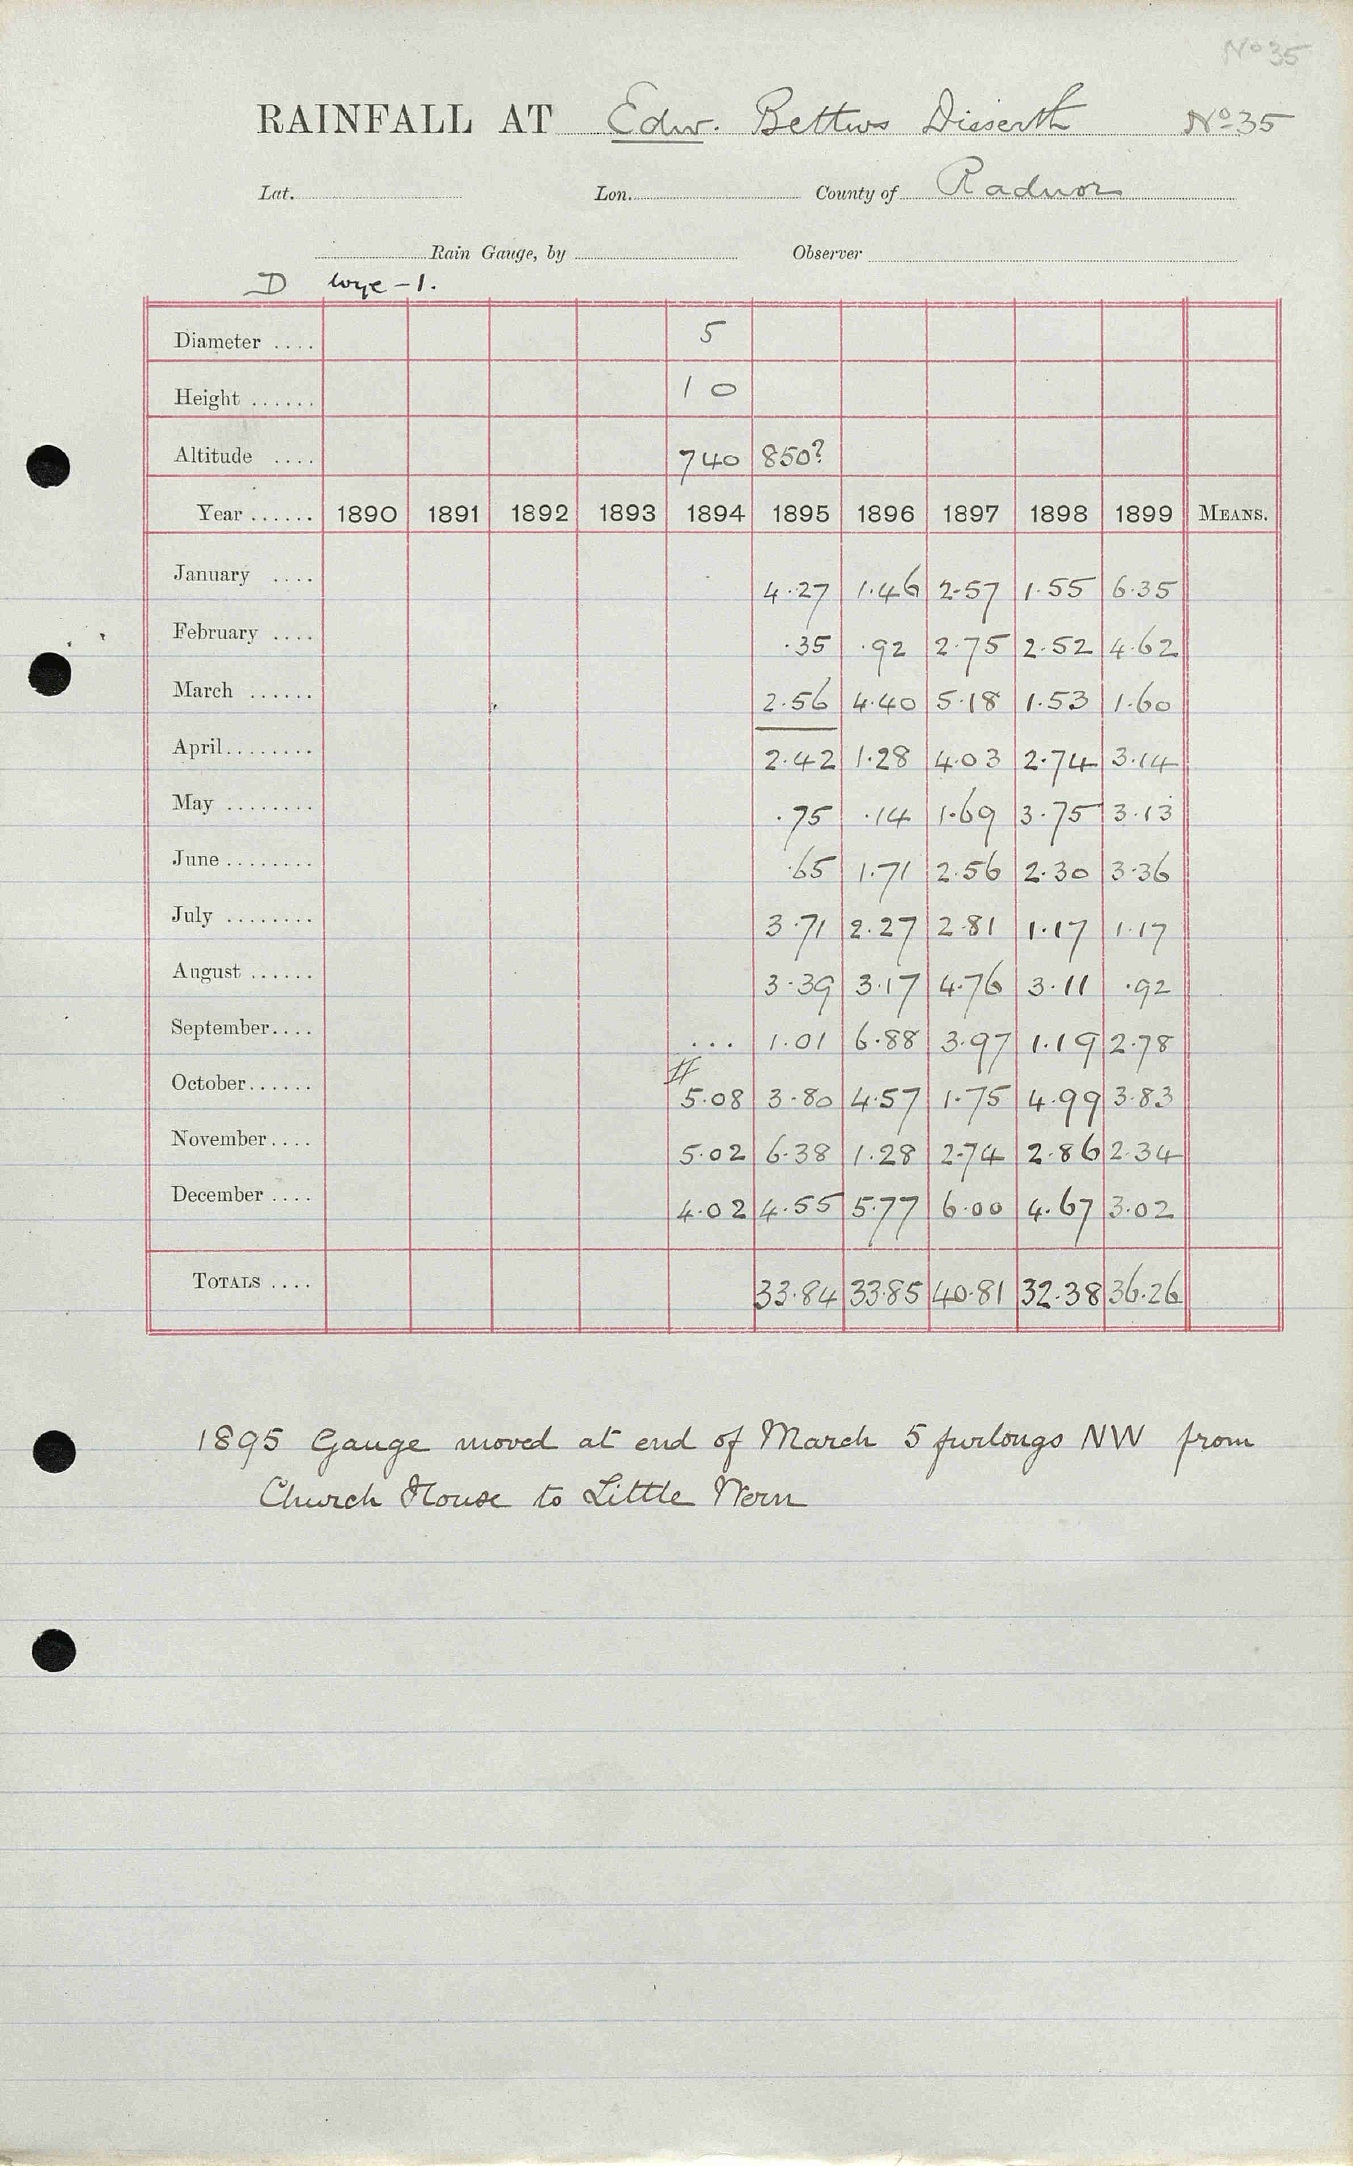 No 35
RAINFALL AT Edw. Bettws Disserth No 35
Lat. Lon. County of Radnor
Rain Gauge, by Observer
D Wye - 1.
Diameter .... 5
Height ...... 1 0
Altitude .... 740 850?
Year ...... 1890 1891 1892 1893 1894 1895 1896 1897 1898 1899 MEANS.
January .... 4.27 1.46 2.57 1.55 6.35
February .... .35 .92 2.75 2.52 4.62
March ...... 2.56 4.40 5.18 1.53 1.60
April ........ 2.42 1.28 4.03 2.74 3.14
May ........ .75 .14 1.69 3.75 3.13
June ........ .65 1.71 2.56 2.30 3.36
July ........ 3.71 2.27 2.81 1.17 1.17
August ...... 3.39 3.17 4.76 3.11 .92
September .... ... 1.01 6.88 3.97 1.19 2.78
October ...... 5.08 3.80 4.57 1.75 4.99 3.83
November .... 5.02 6.38 1.28 2.74 2.86 2.34
December .... 4.02 4.55 5.77 6.00 4.67 3.02
TOTALS .... 33.84 33.85 40.81 32.38 36.26
1895 Gauge moved at end of March 5 furlongs NW from
Church House to Little Wern